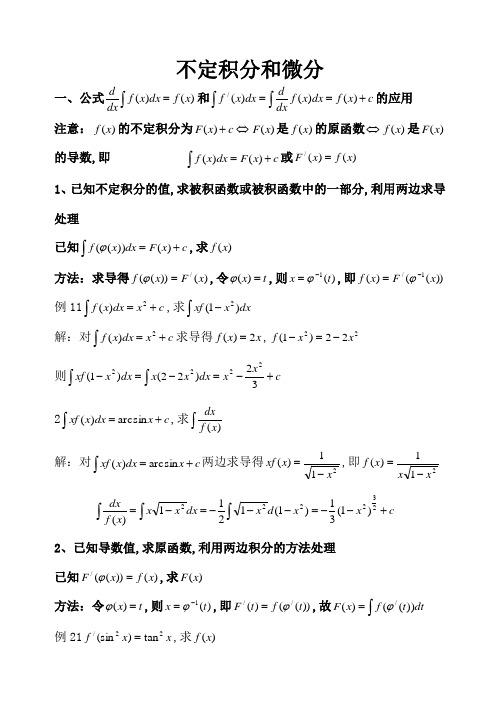 不定积分和微分
一、公式 d/dx ∫f(x)dx = f(x) 和 ∫f^/(x)dx = ∫ d/dx f(x)dx = f(x)+c 的应用
注意：f(x)的不定积分为F(x)+c ⇔ F(x)是f(x)的原函数 ⇔ f(x)是F(x)
的导数,即 ∫f(x)dx = F(x)+c 或 F^/(x) = f(x)
1、已知不定积分的值,求被积函数或被积函数中的一部分,利用两边求导
处理
已知∫f(φ(x))dx = F(x)+c,求f(x)
方法：求导得f(φ(x)) = F^/(x),令φ(x) = t,则x = φ^{-1}(t),即f(x) = F^/(φ^{-1}(x))
例 11∫f(x)dx = x^2+c,求∫xf(1-x^2)dx
解：对∫f(x)dx = x^2+c求导得f(x) = 2x,f(1-x^2) = 2-2x^2
则∫xf(1-x^2)dx = ∫x(2-2x^2)dx = x^2 - 2x^2/3 + c
2∫xf(x)dx = arcsin x+c,求∫dx/f(x)
解：对∫xf(x)dx = arcsin x+c两边求导得xf(x) = 1/√(1-x^2),即f(x) = 1/(x√(1-x^2))
∫dx/f(x) = ∫x√(1-x^2)dx = -1/2 ∫√(1-x^2)d(1-x^2) = -1/3 (1-x^2)^{3/2} + c
2、已知导数值,求原函数,利用两边积分的方法处理
已知F^/(φ(x)) = f(x),求F(x)
方法：令φ(x) = t,则x = φ^{-1}(t),即F^/(t) = f(φ^/(t)),故F(x) = ∫f(φ^/(t))dt
例 21 f^/(sin^2 x) = tan^2 x,求f(x)